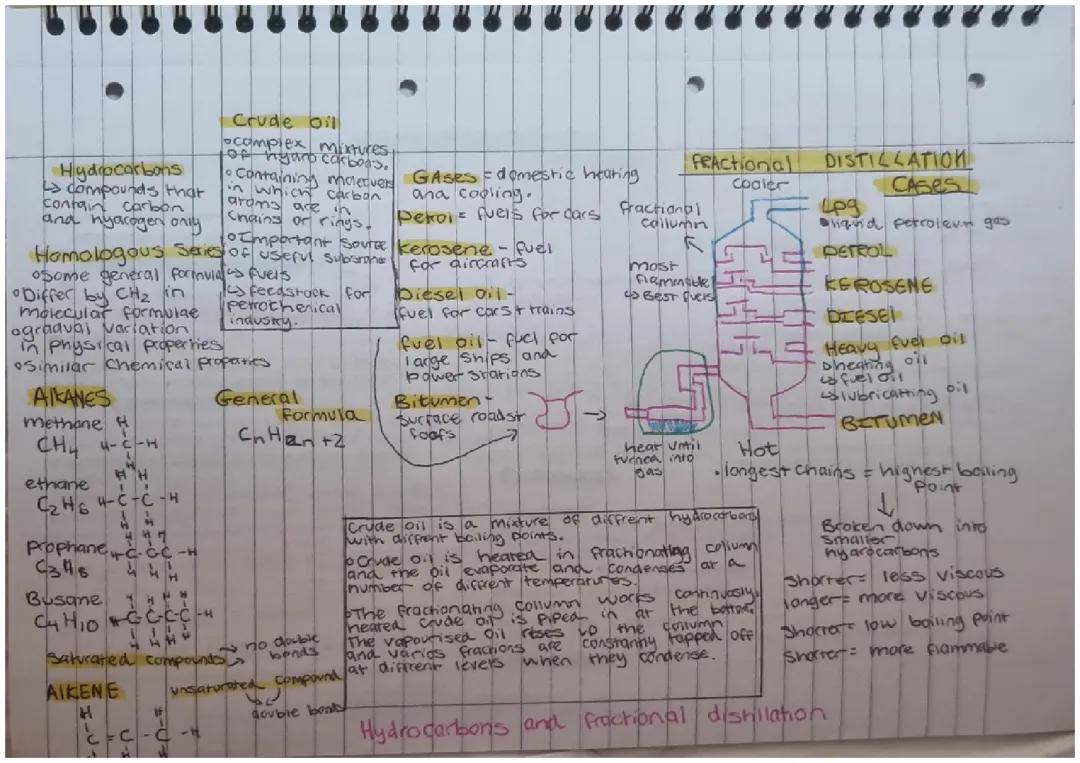 Crude oil
○complex mixtures
of hydrocarbons.
○Containing molecules
in which carbon
atoms are in
chains or rings.
○Important source
of useful substance
↳ fuels
↳ feedstock for
petrochemical
industry.
Hydrocarbons
↳ compounds that
contain carbon
and hydrogen only
Homologous Series
○same general formula
○Differ by CH2 in
molecular formulae
○gradual variation
in physical properties
○Similar chemical properties
AlKANES
methane
CH4
H
H-C-H
H
ethane
C2H6
H H
H-C-C-H
H H
Prophane
C3H8
H H H
H-C-C-C-H
H H H
Busane
C4H10
H H H H
H-C-C-C-C-H
H H H H
Saturated compounds → no double
bonds
AlKENE
unsaturated compound
double bonds
H H
C=C-C-H
H H
General
Formula
CnH2n+2
GAses = domestic heating
and cooling.
petrol = fuels for cars
kerosene - fuel
for aircrafts
Diesel oil-
fuel for cars + trains
fuel oil - fuel for
large ships and
power stations
Bitumen-
surface roads+
roofs
FRActional DISTILLATION
cooler
CASES
fractional
collumn
most
flammable
↳ Best fuels
Lpg
liquid petroleum gas
PETROL
KEROSENE
DIESEl
Heavy fuel oil
↳heating oil
↳fuel oil
↳lubricatting oil
BITUMEN
heat until
turned into
gas
Hot
•longest chains = highest boiling
Point
↓
Broken down into
smaller
hydrocarbons
Shorter = less viscous
longer = more viscous
Shorter = low boiling point
Shorter = more flammable
Crude oil is a mixture of diffrent hydrocarbons
with diffrent boiling points.
○Crude oil is heated in frachionating collumn
and the oil evaporate and condenses at a
number of diffrent temperatures.
○The frachionating collumn works continuously,
heated crude oil is piped in at the bottom.
The vapourised oil rises up the collumn
and varios fractions are constantly tapped off
at diffrent levels when they condense.
Hydrocarbons and fractional distillation